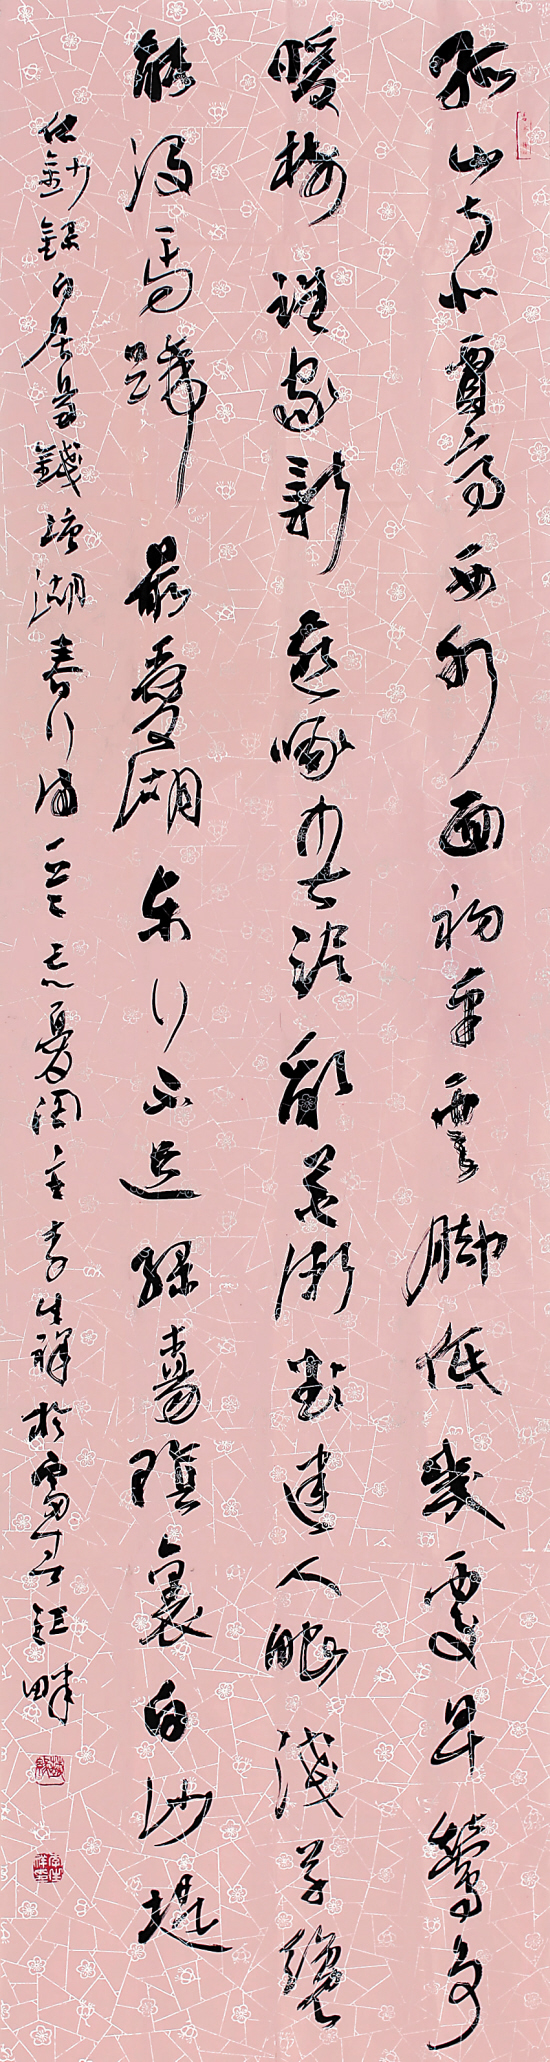 孤山寺北賈亭西水面初平雲腳低幾處早鶯爭
暖樹誰家新燕啄春泥亂花漸欲迷人眼淺草纔
能沒馬蹄最愛湖東行不足綠楊陰裏白沙堤
鈔錄白居易錢塘湖春行詩一首忘憂閣主李生祥於富春江畔